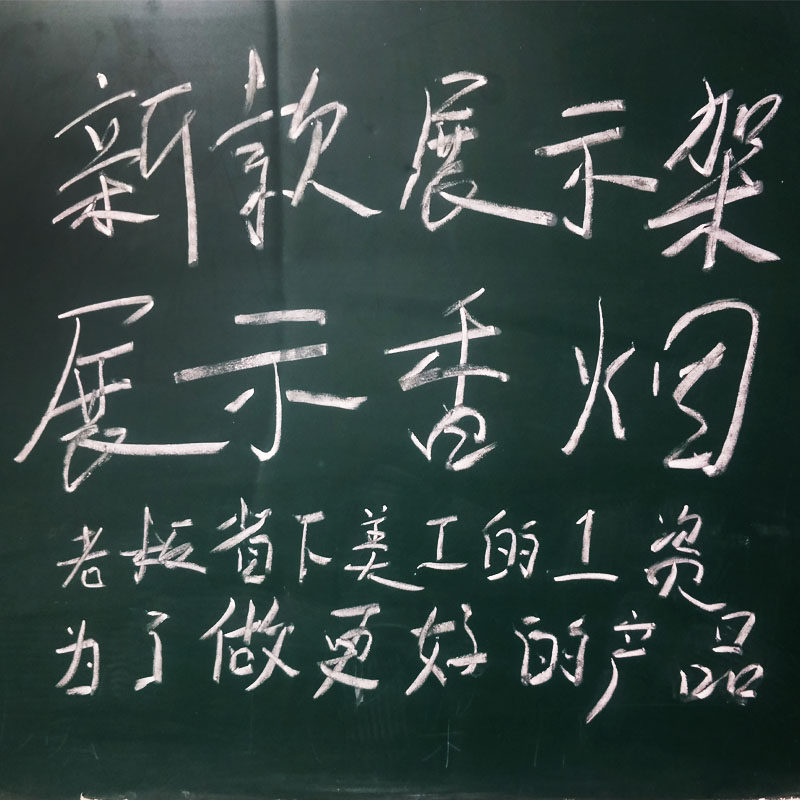 新款展示架
展示香烟
老板省下美工的工资
为了做更好的产品